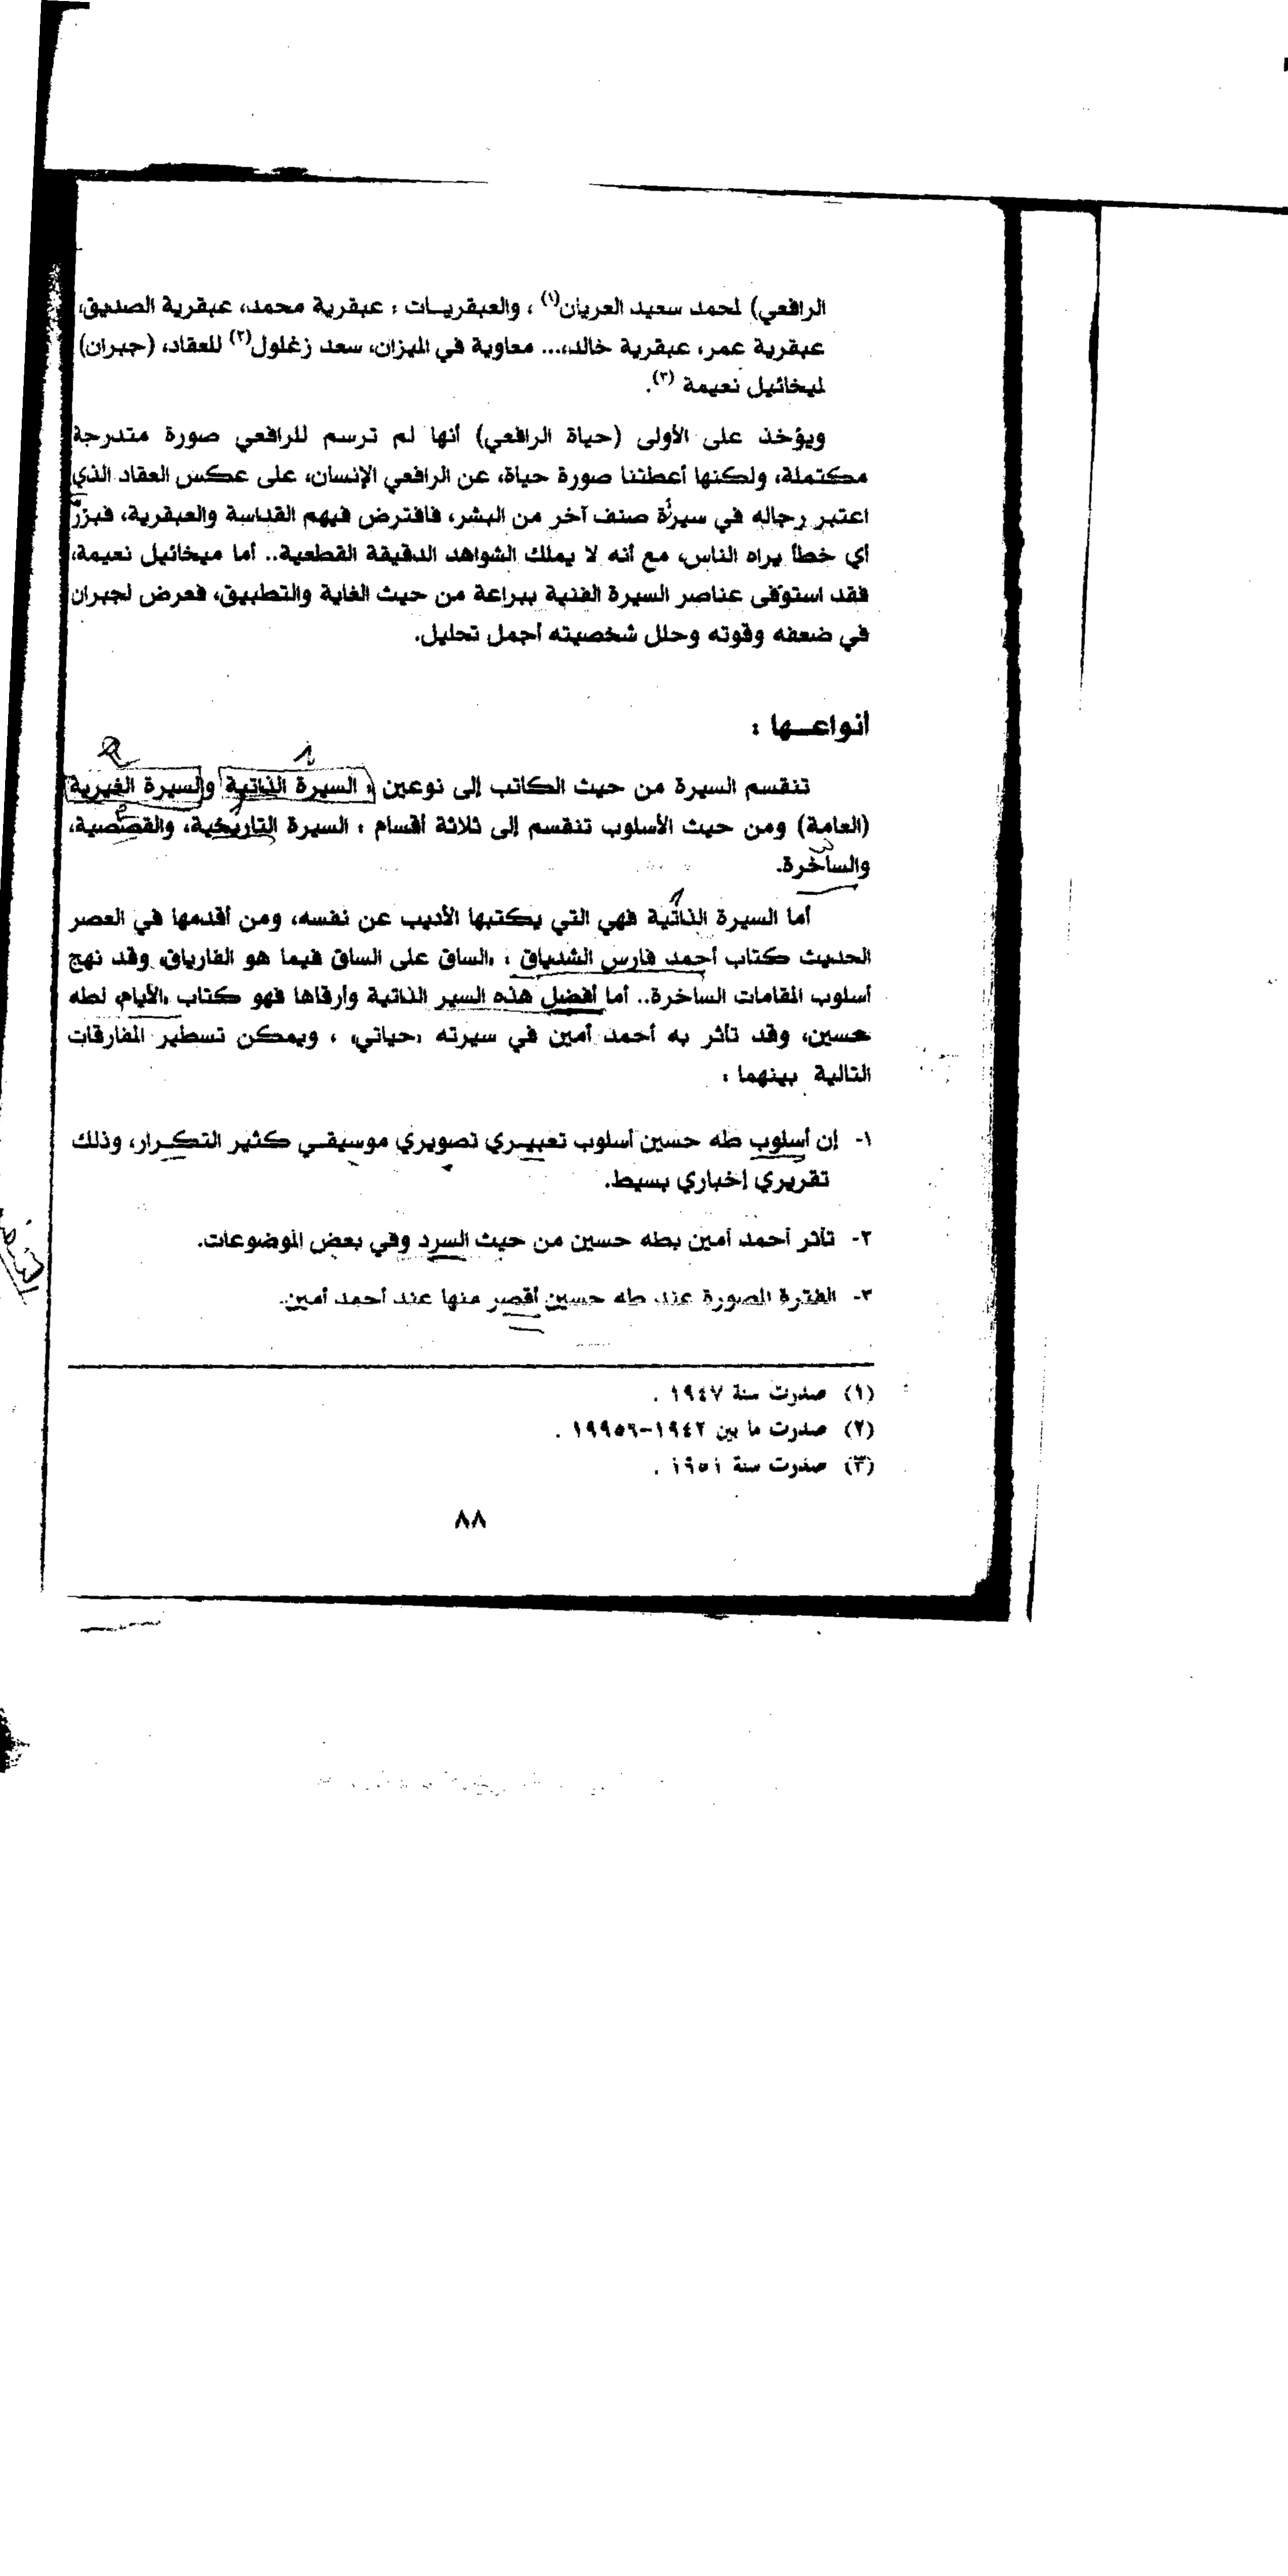 الرافعي) لمحمد سعيد العريان(١) ، والعبقريات : عبقرية محمد، عبقرية الصديق،
عبقرية عمر، عبقرية خالد،... معاوية في الميزان، سعد زغلول(٢) للعقاد، (جبران)
لميخائيل نعيمة (٣).
ويؤخذ على الأولى (حياة الرافعي) أنها لم ترسم للرافعي صورة متدرجة
مكتملة، ولكنها أعطتنا صورة حياة، عن الرافعي الإنسان، على عكس العقاد الذي
اعتبر رجاله في سيره صنف آخر من البشر، فافترض فيهم القداسة والعبقرية، فبرر
أي خطأ يراه الناس، مع أنه لا يملك الشواهد الدقيقة القطعية.. أما ميخائيل نعيمة،
فقد استوفى عناصر السيرة الفنية ببراعة من حيث الغاية والتطبيق، فعرض لجبران
في ضعفه وقوته وحلل شخصيته أجمل تحليل.
أنواعها :
تنقسم السيرة من حيث الكاتب إلى نوعين : السيرة الذاتية والسيرة الغيرية
(العامة) ومن حيث الأسلوب تنقسم إلى ثلاثة أقسام : السيرة التاريخية، والقصصية،
والساخرة.
أما السيرة الذاتية فهي التي يكتبها الأديب عن نفسه، ومن أقدمها في العصر
الحديث كتاب أحمد فارس الشدياق : «الساق على الساق فيما هو الفارياق» وقد نهج
أسلوب المقامات الساخرة.. أما أفضل هذه السير الذاتية وأرقاها فهو كتاب «الأيام» لطه
حسين، وقد تأثر به أحمد أمين في سيرته «حياتي» ، ويمكن تسطير المفارقات
التالية بينهما :
١- إن أسلوب طه حسين أسلوب تعبيري تصويري موسيقي كثير التكرار، وذلك
تقريري إخباري بسيط.
٢- تأثر أحمد أمين بطه حسين من حيث السرد وفي بعض الموضوعات.
٣- الفترة المصورة عند طه حسين أقصر منها عند أحمد أمين.
(١) صدرت سنة ١٩٤٧ .
(٢) صدرت ما بين ١٩٤٢-١٩٩٥٦ .
(٣) صدرت سنة ١٩٥١ .
٨٨